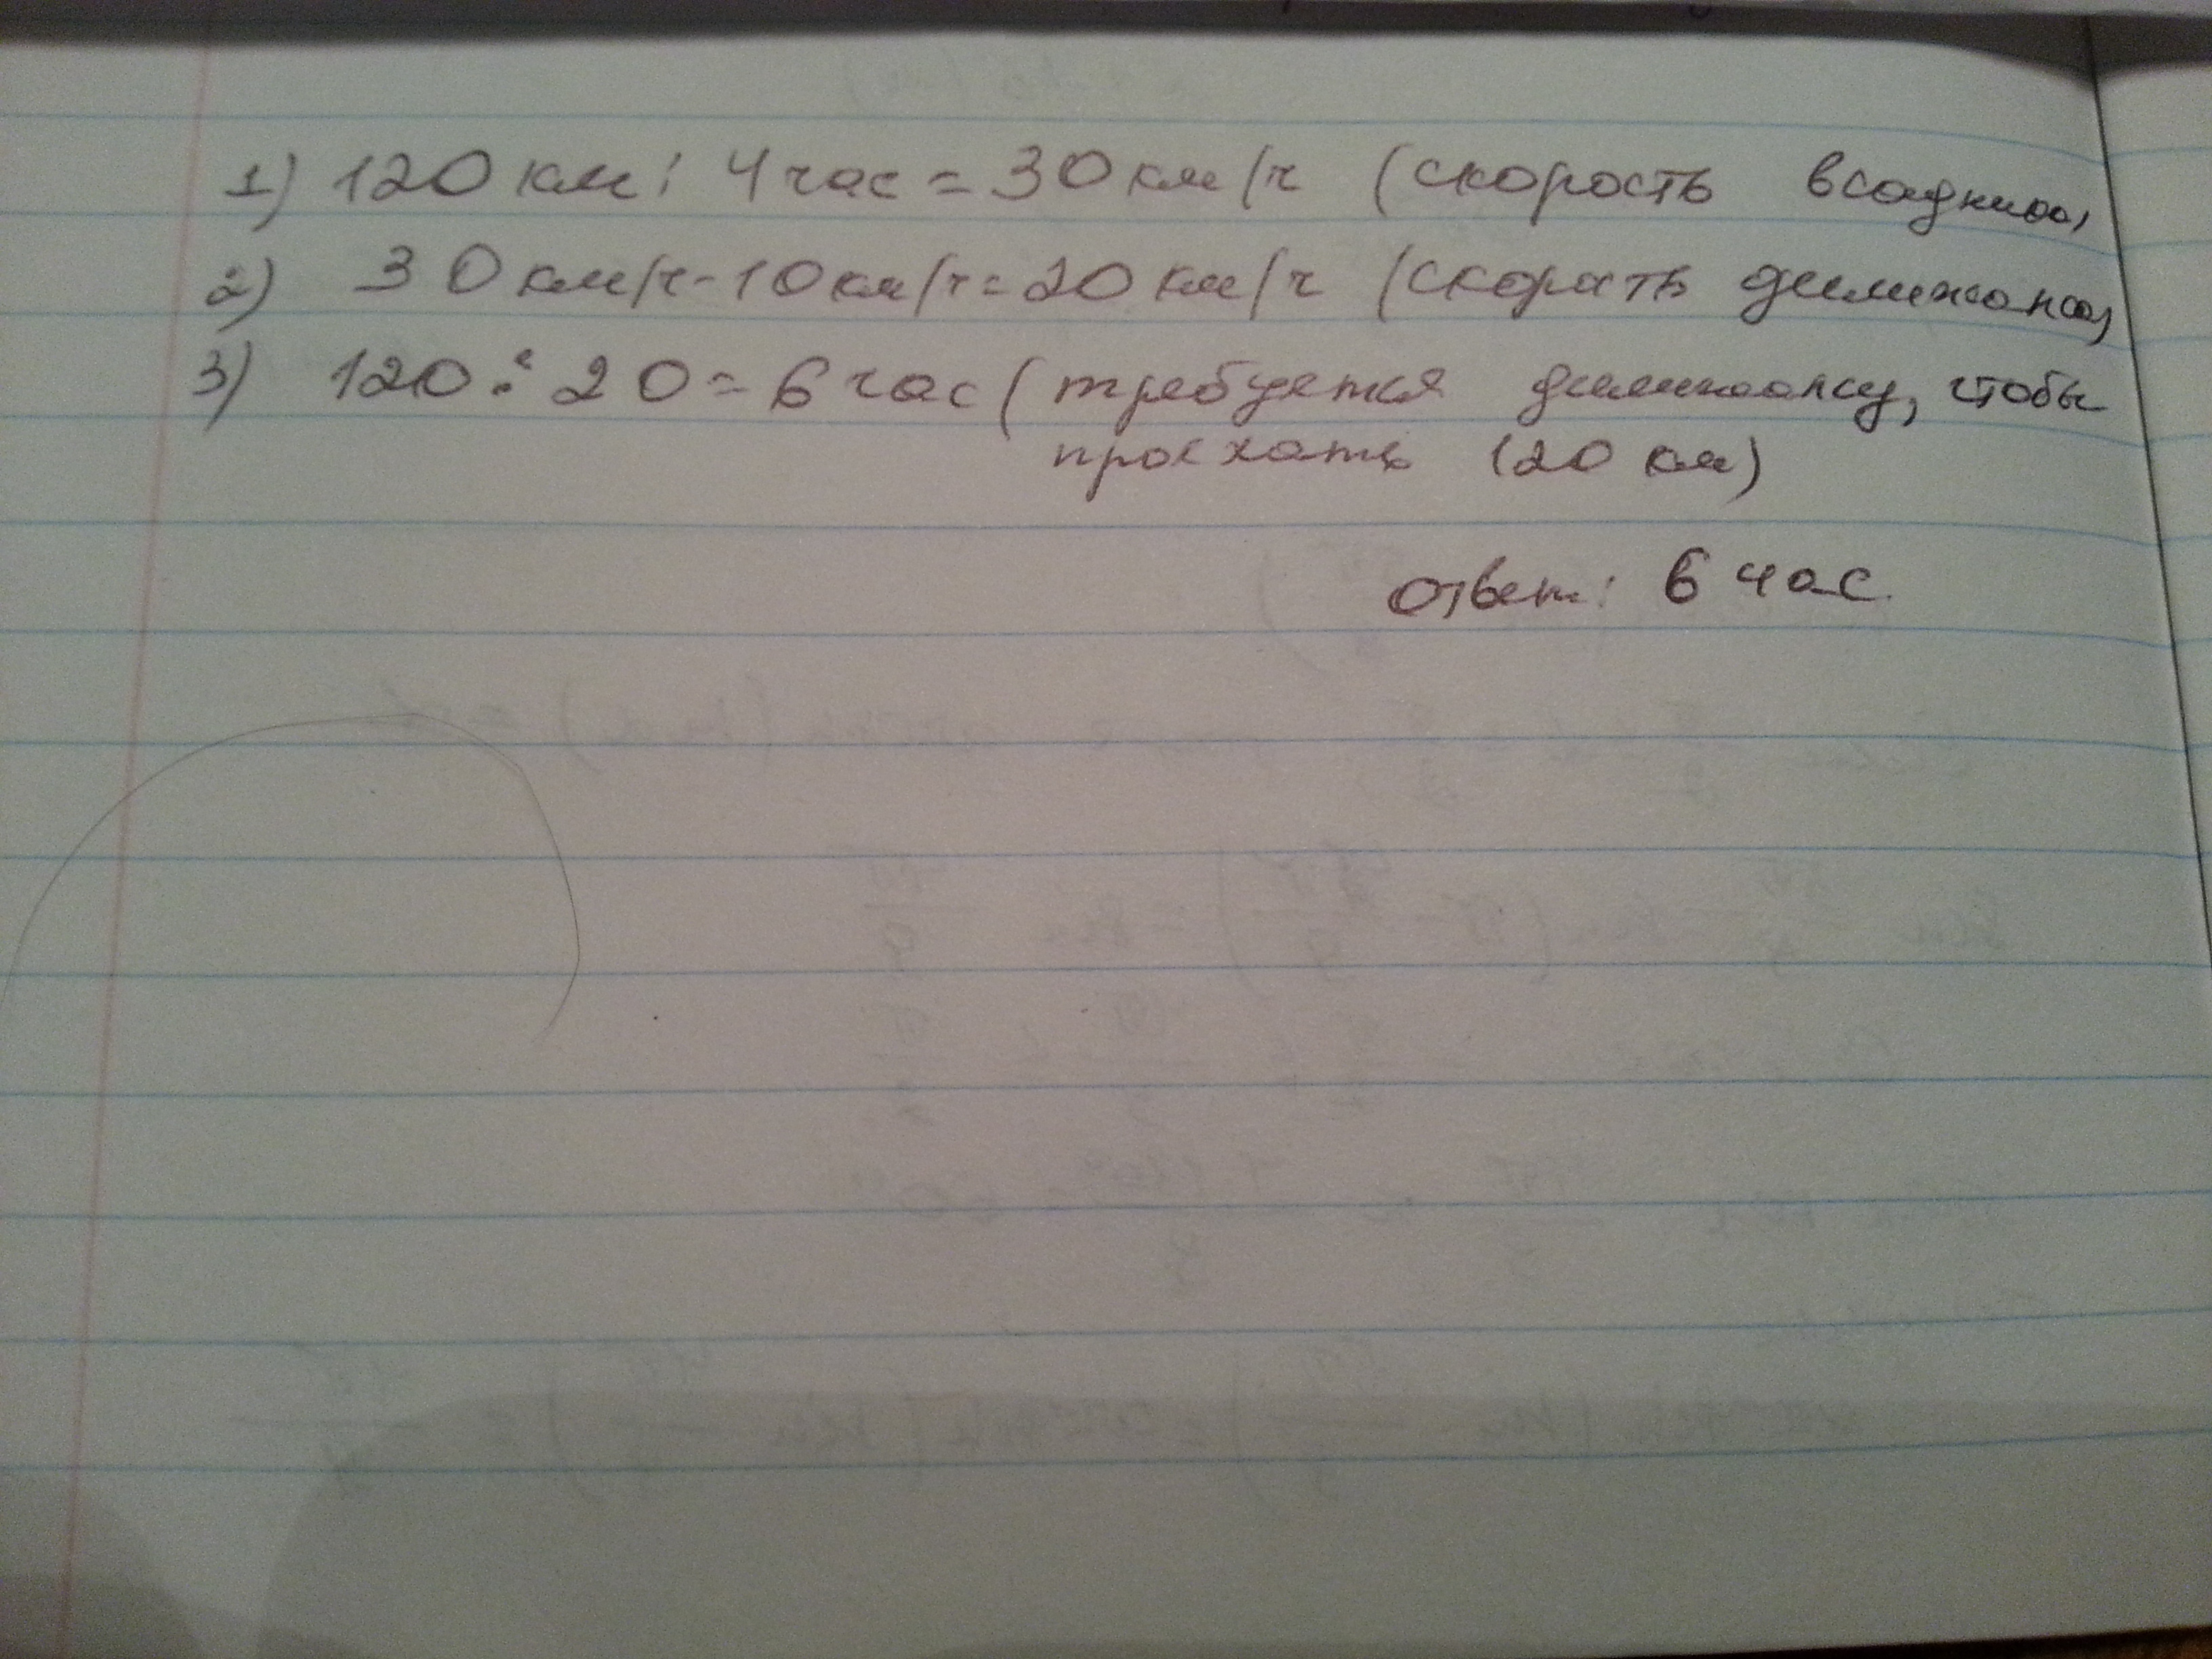 1) 120 км : 4 час = 30 км/ч (скорость всадника)
2) 30 км/ч - 10 км/ч = 20 км/ч (скорость дилижанса)
3) 120 : 20 = 6 час (требуется дилижансу, чтобы
проехать 120 км)
Ответ: 6 час.